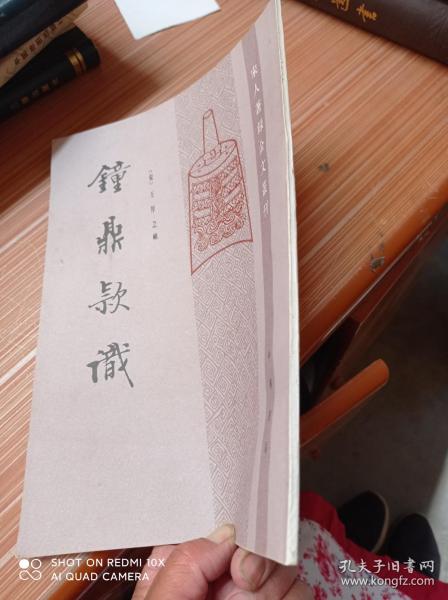 鐘鼎款識
〔宋〕王厚之輯
宋人著録金文叢刊
中華書局
SHOT ON REDMI 10X
AI QUAD CAMERA
孔夫子旧书网
www.kongfz.com